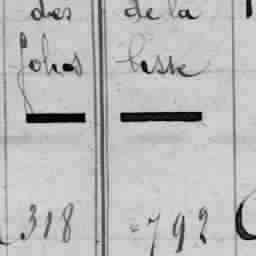 des de la
Johns liste
318 792